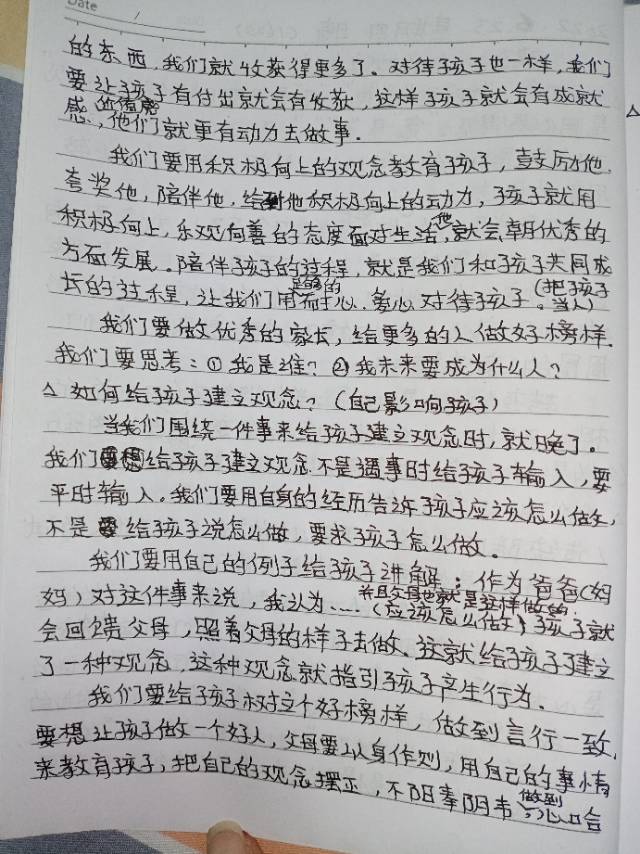 Date
的东西,我们就收获得更多了。对待孩子也一样,我们
要让孩子有付出就会有收获,这样孩子就会有成就
感的信念,他们就更有动力去做事.
我们要用积极向上的观念教育孩子,鼓厉他,
夸奖他,陪伴他,给到他积极向上的动力,孩子就用
积极向上,乐观向善的态度面对生活,他就会朝优秀的
方面发展。陪伴孩子的过程,就是我们和孩子共同成
长的过程,让我们用足够的耐心、爱心对待孩子。(把孩子当人)
我们要做优秀的家长,给更多的人做好榜样.
我们要思考:①我是谁?②我未来要成为什么人?
△ 如何给孩子建立观念?(自己影响孩子)
当我们围绕一件事来给孩子建立观念时,就晚了。
我们要想给孩子建立观念不是遇事时给孩子输入,要
平时输入。我们要用自身的经历告诉孩子应该怎么做,
不是给孩子说怎么做,要求孩子怎么做。
我们要用自己的例子给孩子讲解:作为爸爸(妈
妈)对这件事来说,我认为……(应该怎么做),并且父母也就是这样做的.孩子就
会回馈父母,照着父母的样子去做.这就给孩子建立
了一种观念,这种观念就指引孩子产生行为.
我们要给孩子树立个好榜样,做到言行一致,
要想让孩子做一个好人,父母要以身作则,用自己的事情
来教育孩子,把自己的观念摆正,不阳奉阴韦,做到心口合